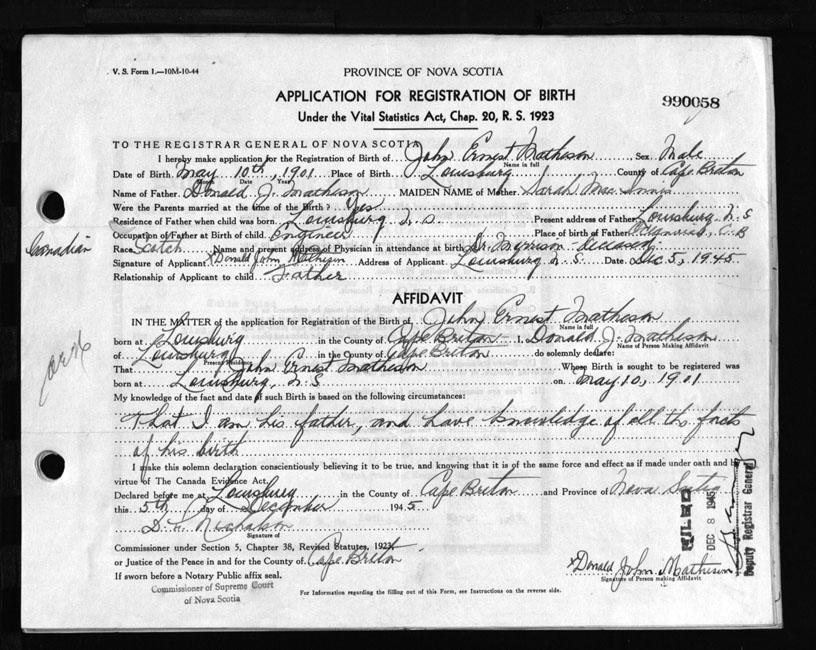 V. S. Form 1.—10M-10-44
PROVINCE OF NOVA SCOTIA
APPLICATION FOR REGISTRATION OF BIRTH
990058
Under the Vital Statistics Act, Chap. 20, R. S. 1923
TO THE REGISTRAR GENERAL OF NOVA SCOTIA
I hereby make application for the Registration of Birth of John Ernest Matheson Sex Male
Name in full
Date of Birth May 10th, 1901 Place of Birth Louisburg County of Cape Breton
Month Date Year
Name of Father Donald J. Matheson MAIDEN NAME of Mother Sarah Mac Innis
Were the Parents married at the time of the Birth? Yes
Residence of Father when child was born Louisburg N. S. Present address of Father Louisburg N. S
Occupation of Father at Birth of child Engineer Place of birth of Father C. B
Canadian
Race Scotch Name and present address of Physician in attendance at birth Dr. deceased
Signature of Applicant x Donald John Matheson Address of Applicant Louisburg N. S. Date Dec 5, 1945
Relationship of Applicant to child Father
AFFIDAVIT
IN THE MATTER of the application for Registration of the Birth of John Ernest Matheson
Name in full
born at Louisburg in the County of Cape Breton I, Donald J. Matheson
Name of Person Making Affidavit
of Louisburg in the County of Cape Breton do solemnly declare:
Present Residence
That John Ernest Matheson Whose Birth is sought to be registered was
born at Louisburg, N. S on May 10, 1901
My knowledge of the fact and date of such Birth is based on the following circumstances:
That I am his father, and have knowledge of all the facts
of his birth
I make this solemn declaration conscientiously believing it to be true, and knowing that it is of the same force and effect as if made under oath and by
virtue of The Canada Evidence Act.
Declared before me at Louisburg in the County of Cape Breton and Province of Nova Scotia
this 5th day of December 1945
Signature of
Commissioner under Section 5, Chapter 38, Revised Statutes, 1923
or Justice of the Peace in and for the County of Cape Breton
If sworn before a Notary Public affix seal.
Commissioner of Supreme Court
of Nova Scotia
x Donald John Matheson
Signature of Person making Affidavit
For Information regarding the filling out of this Form, see Instructions on the reverse side.
FILED
DEC 8 1945
Deputy Registrar General